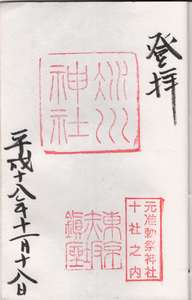 登拝
氷川
神社
元准勅祭神社
十社之内
東京
赤坂
鎮座
平成十八年十一月十八日